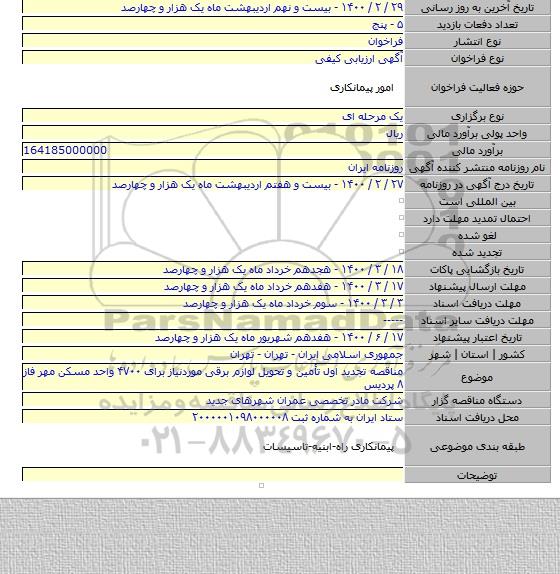 تاریخ آخرین به روز رسانی ۲۹ / ۲ / ۱۴۰۰ - بیست و نهم اردیبهشت ماه یک هزار و چهارصد
تعداد دفعات بازدید ۵ - پنج
نوع انتشار فراخوان
نوع فراخوان آگهی ارزیابی کیفی
حوزه فعالیت فراخوان امور پیمانکاری
نوع برگزاری یک مرحله ای
واحد پولی برآورد مالی ریال
برآورد مالی 164185000000
نام روزنامه منتشر کننده آگهی روزنامه ایران
تاریخ درج آگهی در روزنامه ۲۷ / ۲ / ۱۴۰۰ - بیست و هفتم اردیبهشت ماه یک هزار و چهارصد
بین المللی است
احتمال تمدید مهلت دارد
لغو شده
تجدید شده
تاریخ بازگشایی پاکات ۱۸ / ۳ / ۱۴۰۰ - هجدهم خرداد ماه یک هزار و چهارصد
مهلت ارسال پیشنهاد ۱۷ / ۳ / ۱۴۰۰ - هفدهم خرداد ماه یک هزار و چهارصد
مهلت دریافت اسناد ۳ / ۳ / ۱۴۰۰ - سوم خرداد ماه یک هزار و چهارصد
مهلت دریافت سایر اسناد -----
تاریخ اعتبار پیشنهاد ۱۷ / ۶ / ۱۴۰۰ - هفدهم شهریور ماه یک هزار و چهارصد
کشور | استان | شهر جمهوری اسلامی ایران - تهران - تهران
موضوع مناقصه تجدید اول تأمین و تحویل لوازم برقی موردنیاز برای ۴۷۰۰ واحد مسکن مهر فاز
۸ پردیس
دستگاه مناقصه گزار شرکت مادر تخصصی عمران شهرهای جدید
محل دریافت اسناد ستاد ایران به شماره ثبت ۲۰۰۰۰۰۱۰۹۸۰۰۰۰۰۸
طبقه بندی موضوعی پیمانکاری راه-ابنیه-تاسیسات
توضیحات
ParsNamadData
۰۲۱-۸۸۳۴۹۶۷۰-۵